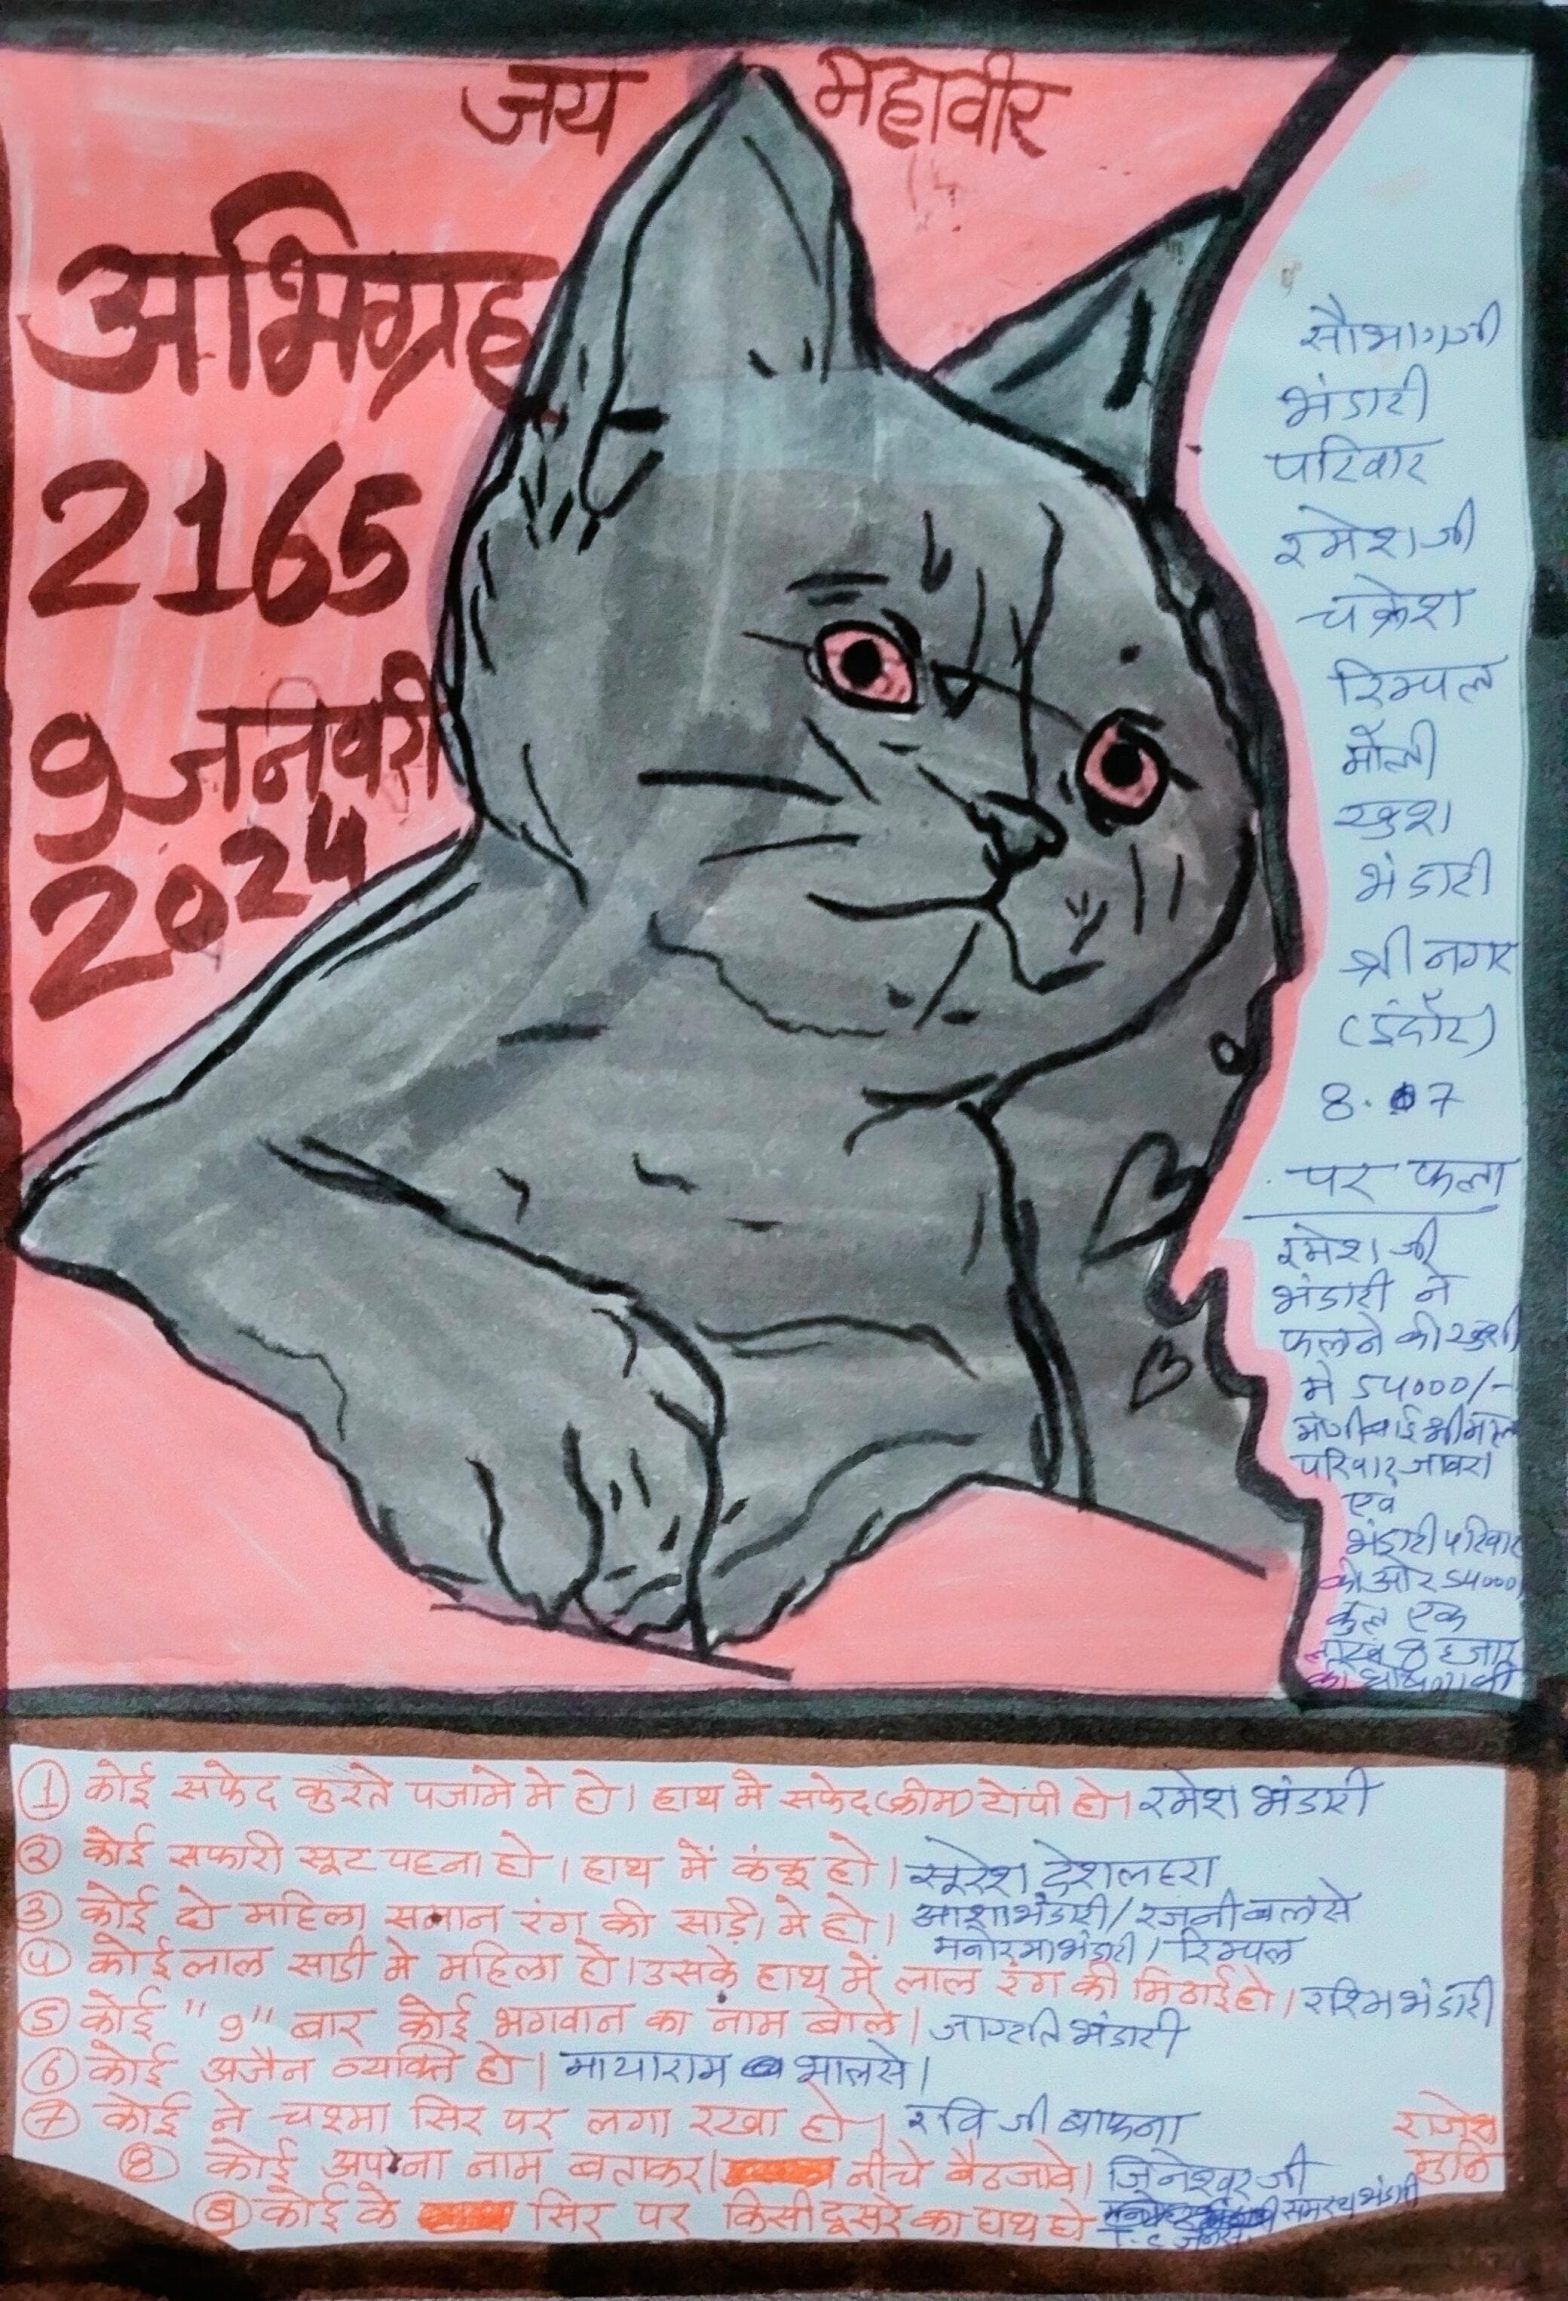 जय महावीर
अभिग्रह
2165
9 जनवरी
2024
सौभागजी
भंडारी
परिवार
रमेश जी
चक्रेश
रिम्पल
मौली
खुश
भंडारी
श्री नगर
(इंदौर)
8.07
पर फला
रमेश जी
भंडारी ने
फलने की खुशी
मे 54000/-
परिवार जावरा
एवं
भंडारी परिवार
की ओर 54000
कुल एक
लाख 8 हजार
की घोषणा की
① कोई सफेद कुरते पजामे मे हो। हाथ मे सफेद (क्रीम) टोपी हो। रमेश भंडारी
② कोई सफारी सूट पहना हो। हाथ में कंकू हो। सुरेश देशलहरा
③ कोई दो महिला समान रंग की साड़ी मे हो। आशा भंडारी / रजनी वलसे
मनोरमा भंडारी / रिम्पल
④ कोई लाल साडी मे महिला हो। उसके हाथ में लाल रंग की मिठाई हो। रश्मि भंडारी
⑤ कोई "9" बार कोई भगवान का नाम बोले। जाग्रति भंडारी
⑥ कोई अजैन व्यक्ति हो। मायाराम भालसे।
⑦ कोई ने चश्मा सिर पर लगा रखा हो। रवि जी बाफना
⑧ कोई अपना नाम बताकर नीचे बैठ जावे। जिनेश्वर जी
⑨ कोई के सिर पर किसी दूसरे का हाथ हो समरथ भंडारी
राजेश
मुनि